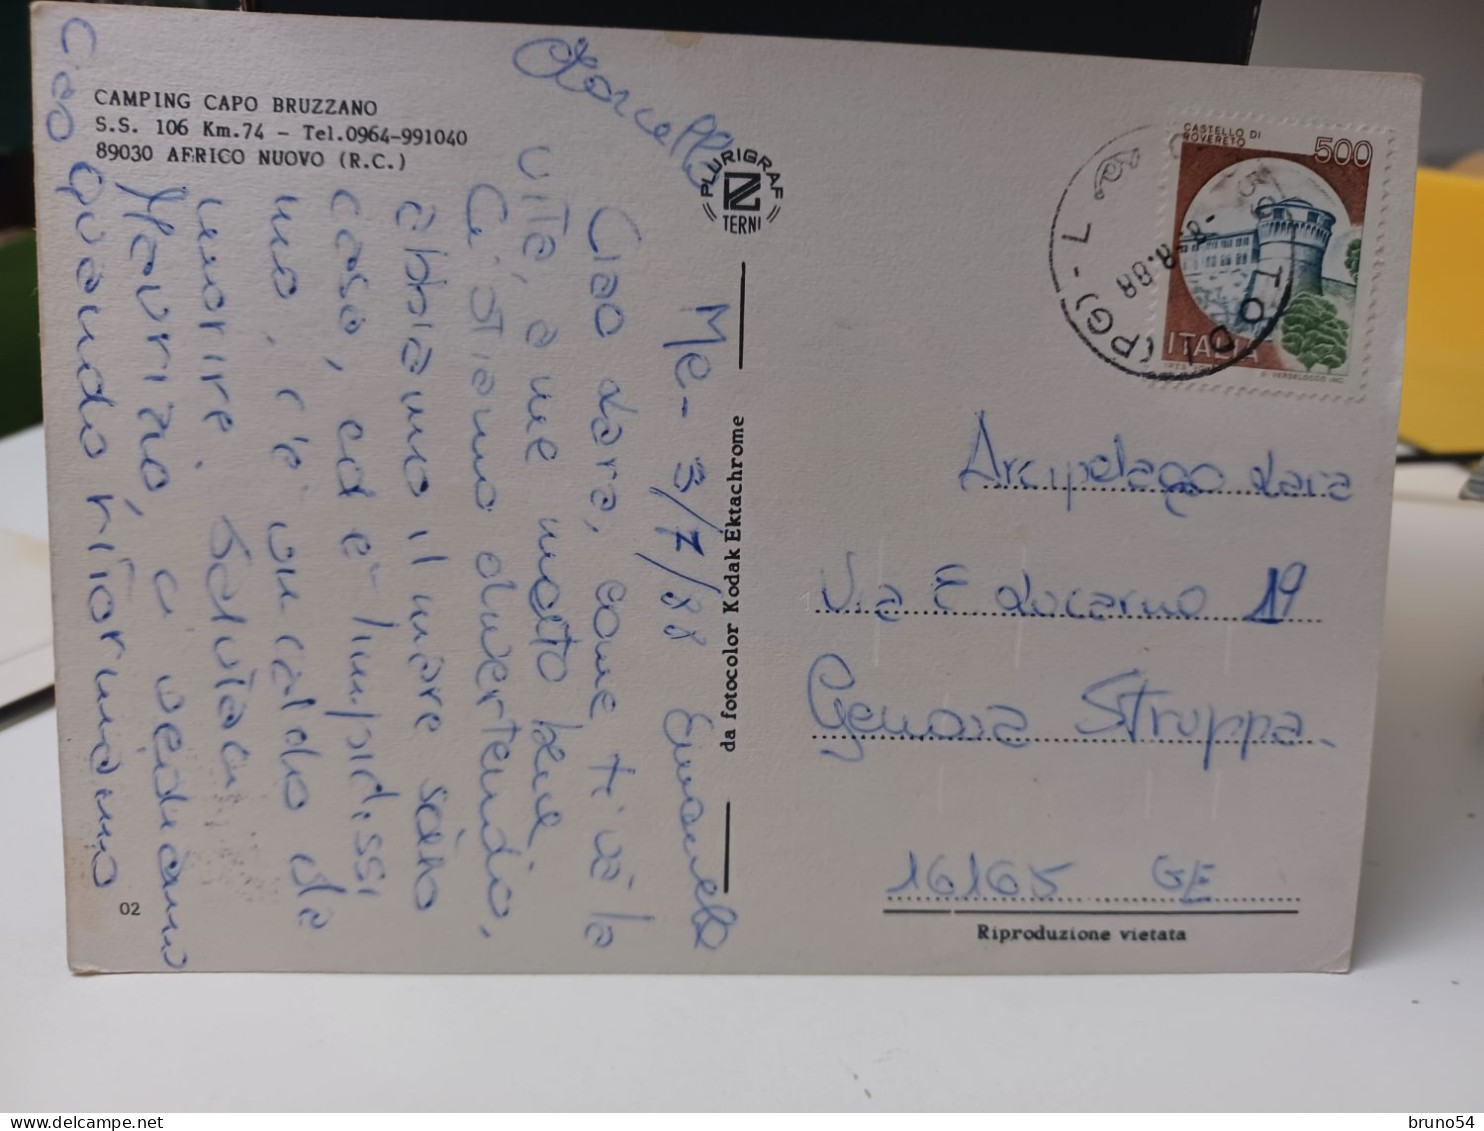 CAMPING CAPO BRUZZANO
S.S. 106 Km.74 - Tel.0964-991040
89030 AFRICO NUOVO (R.C.)
PLURIGRAF
TERNI
CASTELLO DI
ROVERETO
500
ITALIA
TODI (PG) - L
-8.88
Me- 3/7/88
Ciao Lara, come ti va la
vita, a me molto bene
Ci stiamo divertendo,
abbiamo il mare sotto
casa, ed e' limpidissi
mo, c'è un caldo da
morire. Salutaci
Maurizio, ci vediamo
quando ritorniamo
Ciao
Emanuela
Marcello
da fotocolor Kodak Ektachrome
Arcipelago Lara
Via E. Locarno 19
Genova Struppa.
16165 GE
Riproduzione vietata
02
delcampe.net
bruno54